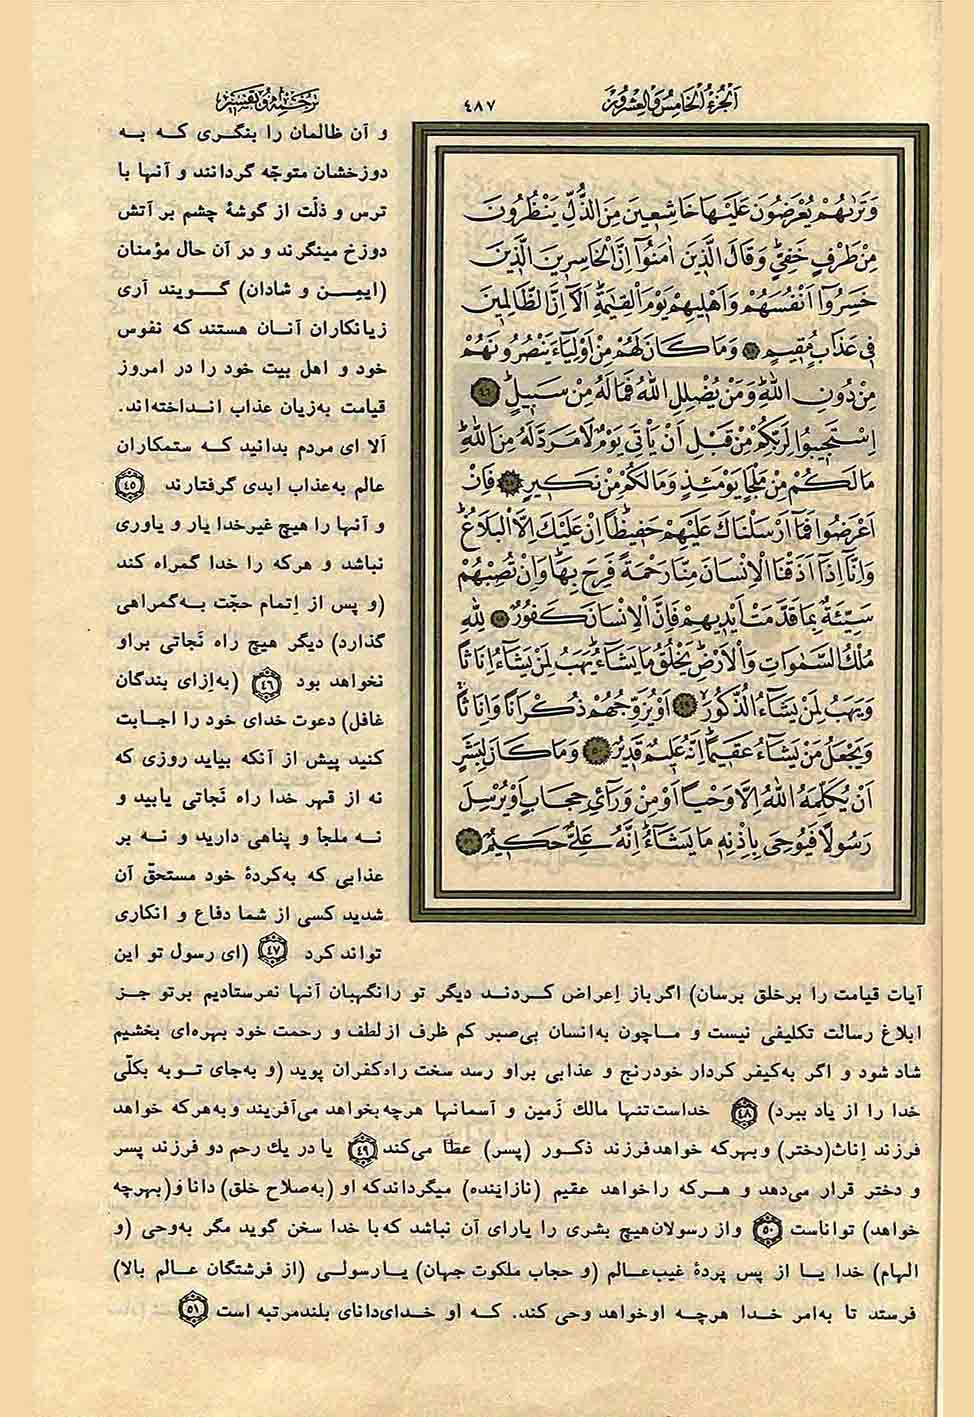 الجزء الخامس والعشرون
٤٨٧
ترجمه و تفسیر
وَتَرٰیهُمْ یُعْرَضُونَ عَلَیْهَا خَاشِعِینَ مِنَ الذُّلِّ یَنْظُرُونَ
مِنْ طَرْفٍ خَفِیٍّ وَقَالَ الَّذِینَ اٰمَنُوٓا اِنَّ الْخَاسِرِینَ الَّذِینَ
خَسِرُوٓا اَنْفُسَهُمْ وَاَهْلِیهِمْ یَوْمَ الْقِیٰمَةِ اَلَآ اِنَّ الظَّالِمِینَ
فِی عَذَابٍ مُقِیمٍ ٤٥ وَمَا كَانَ لَهُمْ مِنْ اَوْلِیَآءَ یَنْصُرُونَهُمْ
مِنْ دُونِ اللّٰهِ وَمَنْ یُضْلِلِ اللّٰهُ فَمَالَهُ مِنْ سَبِیلٍ ٤٦
اِسْتَجِیبُوا لِرَبِّكُمْ مِنْ قَبْلِ اَنْ یَأْتِیَ یَوْمٌ لَا مَرَدَّ لَهُ مِنَ اللّٰهِ
مَا لَكُمْ مِنْ مَلْجَأٍ یَوْمَئِذٍ وَمَا لَكُمْ مِنْ نَكِیرٍ ٤٧ فَاِنْ
اَعْرَضُوا فَمَآ اَرْسَلْنَاكَ عَلَیْهِمْ حَفِیظًا اِنْ عَلَیْكَ اِلَّا الْبَلَاغُ
وَاِنَّآ اِذَآ اَذَقْنَا الْاِنْسَانَ مِنَّا رَحْمَةً فَرِحَ بِهَا وَاِنْ تُصِبْهُمْ
سَیِّئَةٌ بِمَا قَدَّمَتْ اَیْدِیهِمْ فَاِنَّ الْاِنْسَانَ كَفُورٌ ٤٨ لِلّٰهِ
مُلْكُ السَّمٰوَاتِ وَالْاَرْضِ یَخْلُقُ مَا یَشَآءُ یَهَبُ لِمَنْ یَشَآءُ اِنَاثًا
وَیَهَبُ لِمَنْ یَشَآءُ الذُّكُورَ ٤٩ اَوْ یُزَوِّجُهُمْ ذُكْرَانًا وَاِنَاثًا
وَیَجْعَلُ مَنْ یَشَآءُ عَقِیمًا اِنَّهُ عَلِیمٌ قَدِیرٌ ٥٠ وَمَا كَانَ لِبَشَرٍ
اَنْ یُكَلِّمَهُ اللّٰهُ اِلَّا وَحْیًا اَوْ مِنْ وَرَآئِ حِجَابٍ اَوْ یُرْسِلَ
رَسُولًا فَیُوحِیَ بِاِذْنِهِ مَا یَشَآءُ اِنَّهُ عَلِیٌّ حَكِیمٌ ٥١
و آن ظالمان را بنگری که به
دوزخشان متوجّه گردانند و آنها با
ترس و ذلّت از گوشهٔ چشم بر آتش
دوزخ مینگرند و در آن حال مؤمنان
(ایمن و شادان) گویند آری
زیانکاران آنان هستند که نفوس
خود و اهل بیت خود را در امروز
قیامت به‌زیان عذاب انداخته‌اند.
الا ای مردم بدانید که ستمکاران
عالم به‌عذاب ابدی گرفتارند ٤٥
و آنها را هیچ غیرخدا یار و یاوری
نباشد و هرکه را خدا گمراه کند
(و پس از اِتمام حجّت به‌گمراهی
گذارد) دیگر هیچ راه نَجاتی براو
نخواهد بود ٤٦ (به‌اِزای بندگان
غافل) دعوت خدای خود را اجابت
کنید پیش از آنکه بیاید روزی که
نه از قهر خدا راه نَجاتی یابید و
نه ملجأ و پناهی دارید و نه بر
عذابی که به‌کردهٔ خود مستحقّ آن
شدید کسی از شما دفاع و انکاری
تواند کرد ٤٧ (ای رسول تو این
آیات قیامت را برخلق برسان) اگرباز اِعراض کردند دیگر تو رانگهبان آنها نفرستادیم برتو جز
ابلاغ رسالت تکلیفی نیست و ماچون به‌انسان بی‌صبر کم ظرف ازلطف و رحمت خود بهره‌ای بخشیم
شاد شود و اگر به‌کیفر کردار خودرنج و عذابی براو رسد سخت راه‌کفران پوید (و به‌جای توبه بکلّی
خدا را از یاد ببرد) ٤٨ خداست‌تنها مالك زَمین و آسمانها هرچه‌بخواهد می‌آفریند وبه‌هرکه خواهد
فرزند اِناث(دختر) وبهرکه خواهدفرزند ذکور (پسر) عطا می‌کند ٤٩ یا در یك رحم دو فرزند پسر
و دختر قرار می‌دهد و هرکه راخواهد عقیم (نازاینده) میگرداندکه او (به‌صلاح خلق) دانا و(بهرچه
خواهد) تواناست ٥٠ واز رسولان‌هیچ بشری را یارای آن نباشد که‌با خدا سخن گوید مگر به‌وحی (و
الهام) خدا یا از پس پردهٔ غیب‌عالم (و حجاب ملکوت جهان) یارسولی (از فرشتگان عالم بالا)
فرستد تا به‌امر خدا هرچه اوخواهد وحی کند. که او خدای‌دانای بلندمرتبه است ٥١